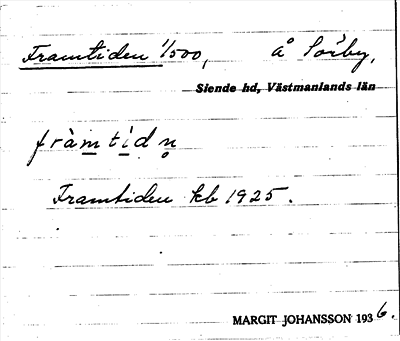 Framtiden 1/500, å Sörby,
Siende hd, Västmanlands län
fràmtìdn̥
Framtiden kb 1925.
MARGIT JOHANSSON 1936.